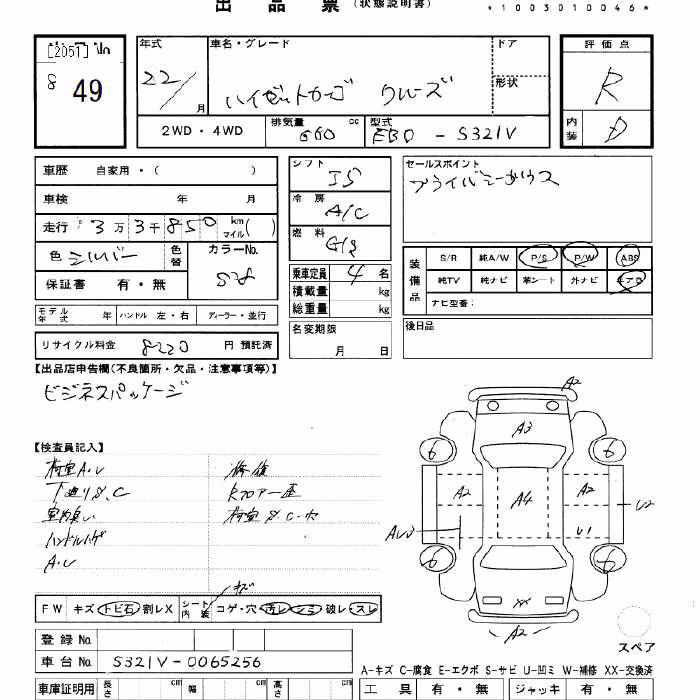 出品票(状態説明書)
*1003010046*
[2051] No
8 49
年式 22/ 月
車名・グレード ハイゼットカーゴ クルーズ
ドア
形状
評価点 R
内装 D
2WD・4WD
排気量 660 cc
型式 EBD - S321V
車歴 自家用・( )
車検 年 月
走行 3万3千850 km マイル( )
色 シルバー 色替 カラーNo. S28
保証書 有・無
シフト I5
冷房 A/C
燃料
乗車定員 4 名
積載量 kg
総重量 kg
セールスポイント
プライバシーガラス
装備品 S/R 純A/W P/S P/W ABS
純TV 純ナビ 革シート 外ナビ エアB
ナビ型番:
モデル年式 年 ハンドル 左・右 ディーラー・並行
名変期限 月 日
後日品
リサイクル料金 8220 円 預託済
【出品店申告欄(不良箇所・欠品・注意事項等)】
ビジネスパッケージ
【検査員記入】
荷室A.U 修復
下廻りS.C
室内臭い 荷室S.C.穴
ハンドルハゲ
A.U
A2
A3
6 6
A2 A4 A2
U2
U1
6 6
A2
スペア
キズ
FW キズ トビ石 割レX シート内装 コゲ・穴 汚レ シミ 破レ・スレ
登録No.
車台No. S321V-0065256
A-キズ C-腐食 E-エクボ S-サビ U-凹ミ W-補修 XX-交換済
車庫証明用 長さ cm 幅 cm 高さ cm 工具 有・無 ジャッキ 有・無